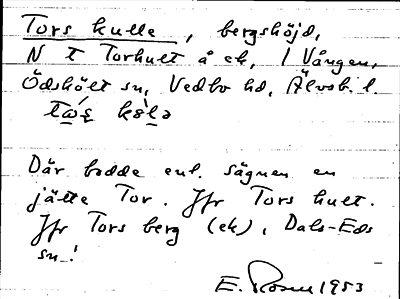 Tors kulle, bergshöjd,
N t Torhult å ek, I Vången,
Ödskölt sn, Vedbo hd, Älvsb. l.
Där bodde enl. sägnen en
jätte Tor. Jfr Tors hult.
Jfr Tors berg (ek), Dals-Eds
sn!
E. Rosen 1953